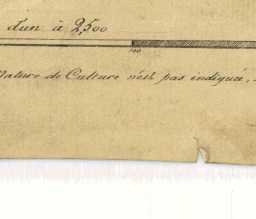 d'un à 2,500
100
Nature de Culture n'est pas indiquée,